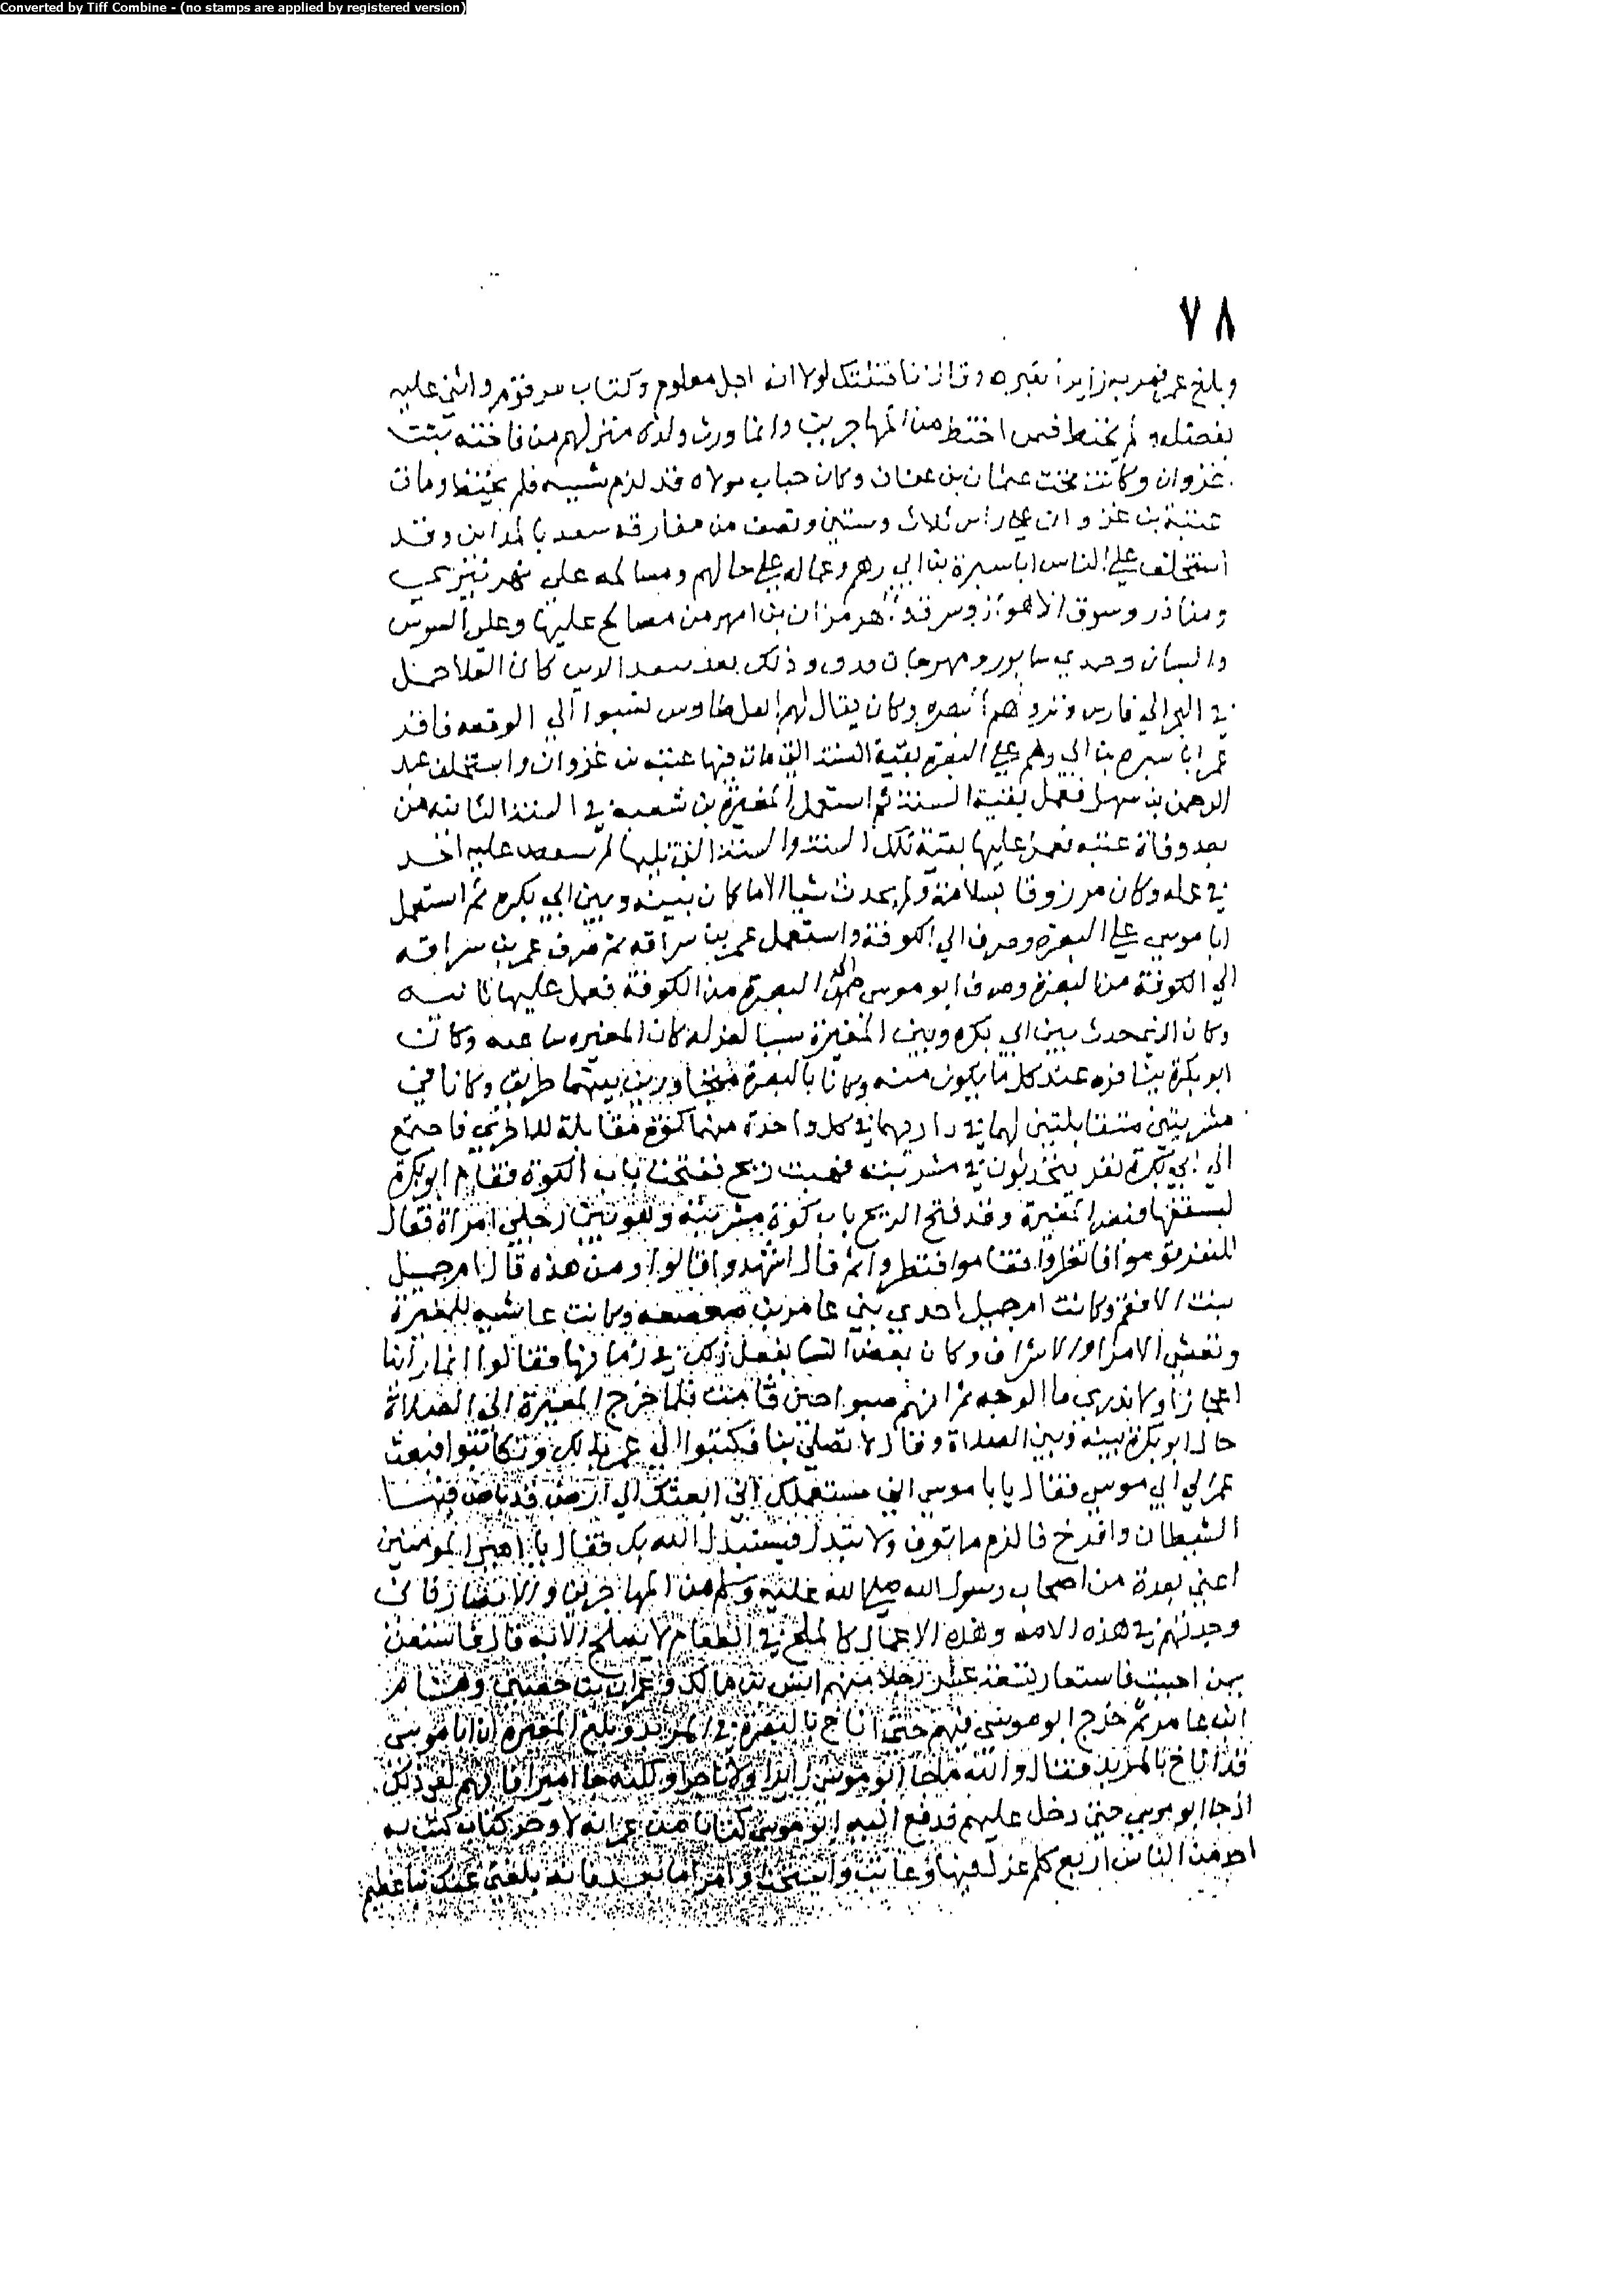 Converted by Tiff Combine - (no stamps are applied by registered version)
٧٨
وبلغ عمر فمر به زايرا لقبره وقال انا قتلتك لولا انه اجل معلوم وكتاب مرقوم واثنى عليه
بفضله ولم يختط فيمن اختط من المهاجرين وانما ورث ولده منزلهم من فاخته بنت
غزوان وكانت تحت عثمان بن عفان وكان حباب مولاه قد لزم شيبه فلم يختط ومات
عتبة بن غزوان على راس ثلاث وسنين ونصف من مفارقه سعد بالمداين وقد
استخلف على الناس ابا سبرة بن ابي رهم وعماله على حالهم ومسالحه على نهر تيري
ومناذر وسوق الاهواز وسرق والهرمزان برامهرمز مصالح عليها وعلى السوس
والبنيان وجندي سابور ومهرجان قذق وذلك بعد تنقذ الذين كان العلا حمل
في البحر الى فارس ونزولهم البصره وكان يقال لهم اهل طاوس نسبوا الى الوقعه فاقر
عمر ابا سبره بن ابي رهم على البصرة بقية السنة التي مات فيها عتبه بن غزوان واستخلف عبد
الرحمن بن سهل فعمل بقية السنة ثم استعمل المغيرة بن شعبه في السنة الثانيه من
بعد وفاة عتبه فعمل عليها بقية تلك السنة والسنة التي تليها لم ينتقض عليه احد
في عمله وكان مرزوقا السلامة ولم يحدث شيا الا ما كان بينه وبين ابي بكره ثم استعمل
ابا موسي على البصره وصرف الى الكوفة واستعمل عمر بن سراقه ثم صرف عمر بن سراقه
الي الكوفة من البصرة وصرف ابو موسى الى البصرة من الكوفة فعمل عليها ثانيه
وكان الذي حدث بين ابي بكره وبين المغيرة سببا لعزله كان المغيره يناغيه وكان
ابو بكرة ينافره عند كل ما يكون منه وكانا بالبصرة متجاورين بينهما طريق وكانا في
مشربتين متقابلتين لهما في داريهما في كل واحدة منهما كوة مقابلة للاخرى فاجتمع
الى ابي بكرة نفر يتحدثون في مشربته فهبت ريح ففتحت باب الكوة فقام ابو بكرة
ليصفقها فبصر بالمغيرة وقد فتح الريح باب كوة مشربته وهو بين رجلي امراة فقال
للنفر قوموا فانظروا فقاموا فنظروا ثم قال اشهدوا قالوا ومن هذه قال ام جميل
بنت الافقم وكانت ام جميل احدى بني عامر بن صعصعه وكانت غاشيه للمغيرة
وتغشى الامرا والاشراف وكان بعض النسا يفعل ذلك في زمانها فقالوا انما راينا
اعجازا ولا ندري ما الوجه ثم انهم صمموا حين قامت فلما خرج المغيرة الى الصلاة
حال ابو بكرة بينه وبين الصلاة وقال لا تصلي بنا فكتبوا الى عمر بذلك وتكاتبوا فبعث
عمر الي ابي موسي فقال يا ابا موسى اني مستعملك اني ابعثك الى ارض قد باض فيها
الشيطان وافرخ فالزم ما تعرف ولا تبدل فيستبدل الله بك فقال يا امير المومنين
اعني بعدة من اصحاب رسول الله صلى الله عليه وسلم من المهاجرين والانصار فاني
وجدتهم في هذه الامه وهذه الاعمال كالملح في الطعام لا يصلح الا به قال فاستعن
بمن احببت فاستعان بتسعة وعشرين رجلا منهم انس بن مالك وعمران بن حصين وهشام
ابن عامر ثم خرج ابو موسى فيهم حتى اناخ بالبصرة في المربد وبلغ المغيره ان ابا موسى
قد اناخ بالمربد فقال والله ما جا ابو موسى زايرا ولا تاجرا ولكنه جا اميرا فانهم لفي ذلك
اذ جا ابو موسى حتى دخل عليهم فدفع اليه ابو موسى كتابا من عمر انه لاوجز كتاب كتب به
احد من الناس اربع كلم عزل فيها وعاتب واستحث وامر اما بعد فانه بلغني عنك نبا عظيم